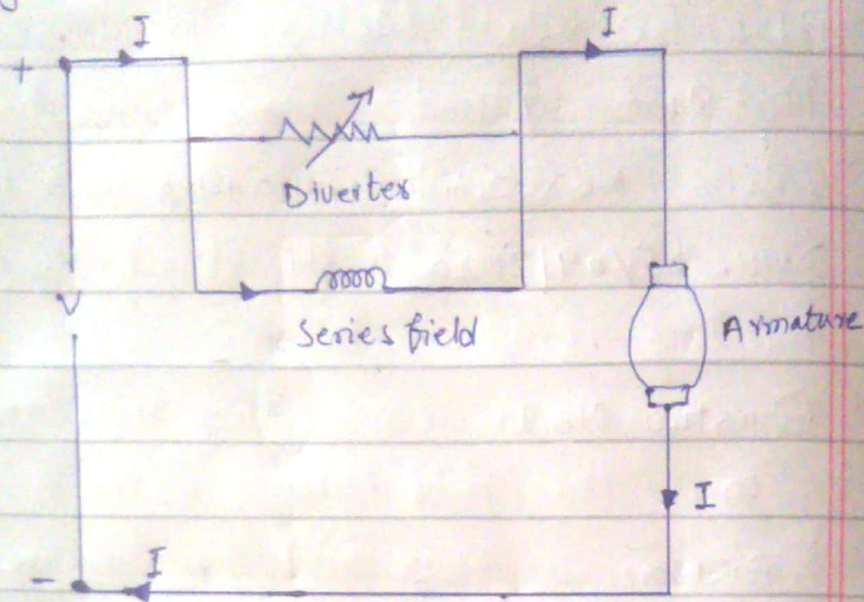 I
I
+
Diverter
V
Series field
Armature
I
I
-